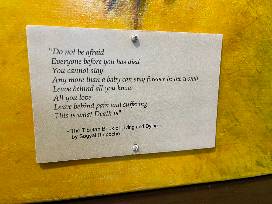 "Do not be afraid
Everyone before you has died
You cannot stay
Any more than a baby can stay forever in the womb
Leave behind all you know
All you love
Leave behind pain and suffering
This is what Death is"
- The Tibetan Book of Living and Dying
by Sogyal Rinpoche